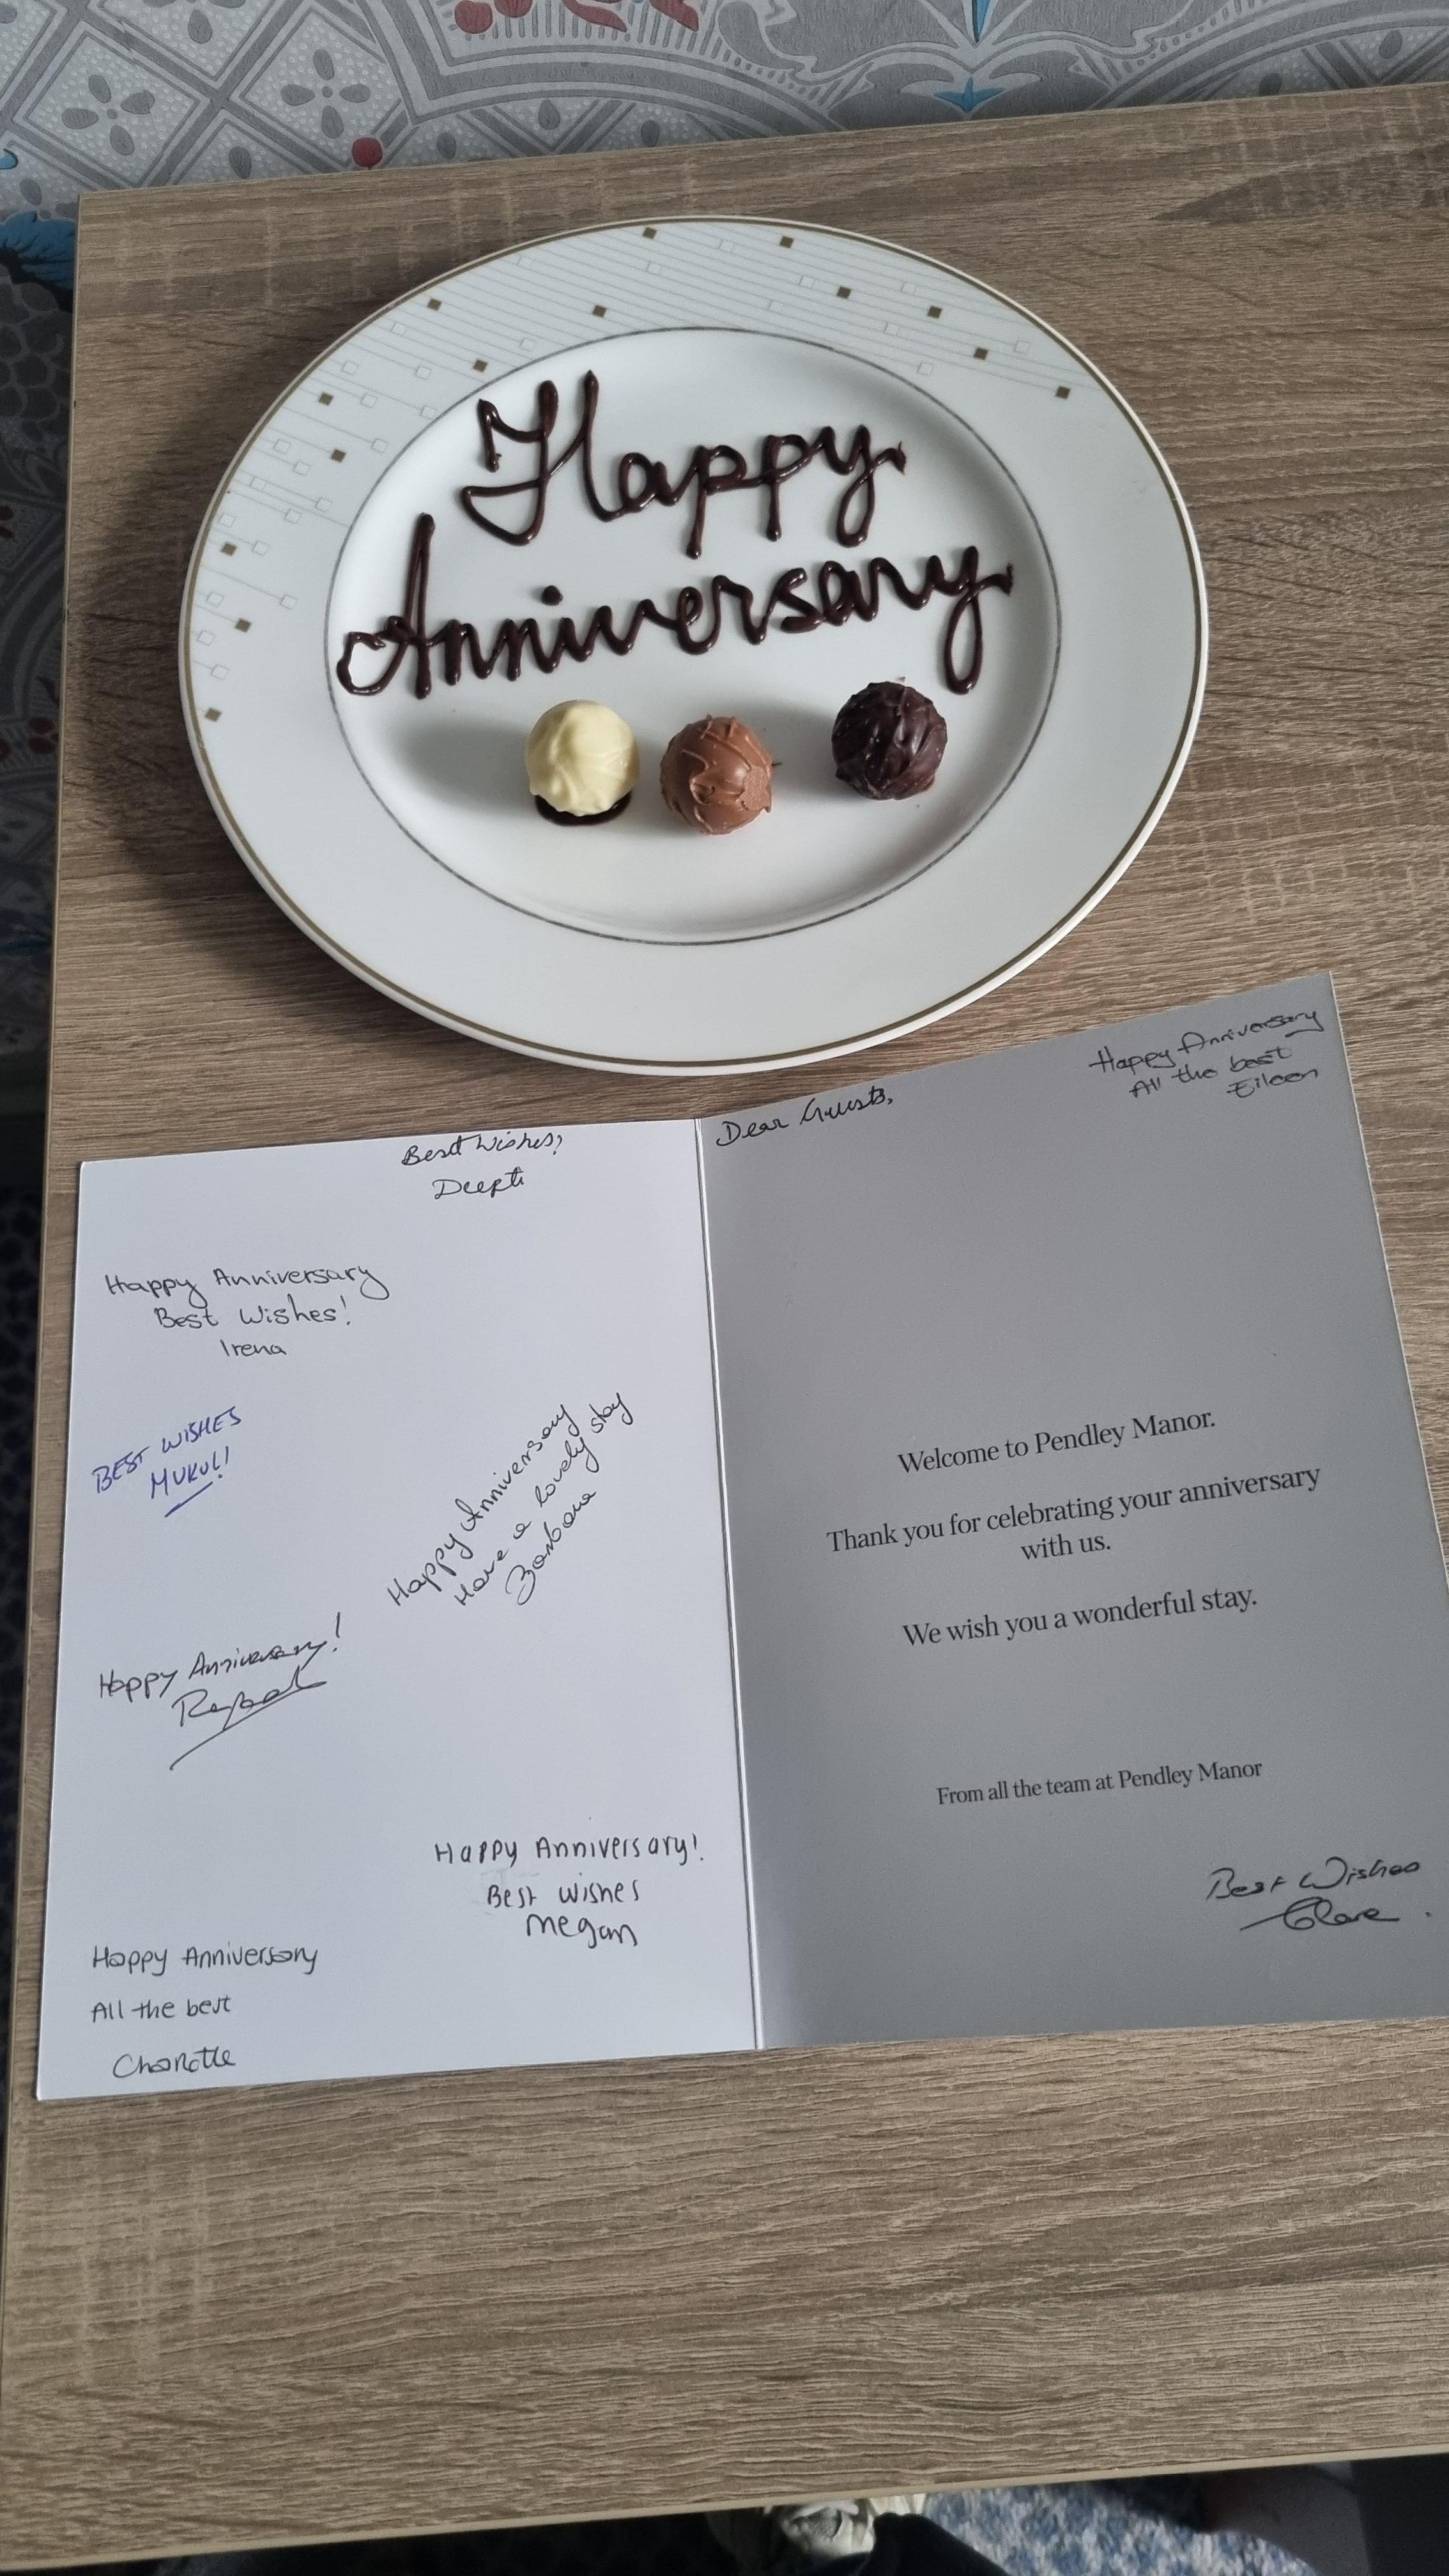 Happy
Anniversary
Best Wishes,
Deepti
Happy Anniversary
Best Wishes!
Irena
BEST WISHES
MUKUL!
Happy Anniversary
Have a lovely stay
Barbara
Happy Anniversary!
Happy Anniversary!
Best Wishes
Megan
Happy Anniversary
All the best
Charlotte
Dear Guests,
Happy Anniversary
All the best
Eileen
Welcome to Pendley Manor.
Thank you for celebrating your anniversary
with us.
We wish you a wonderful stay.
From all the team at Pendley Manor
Best Wishes
Clare